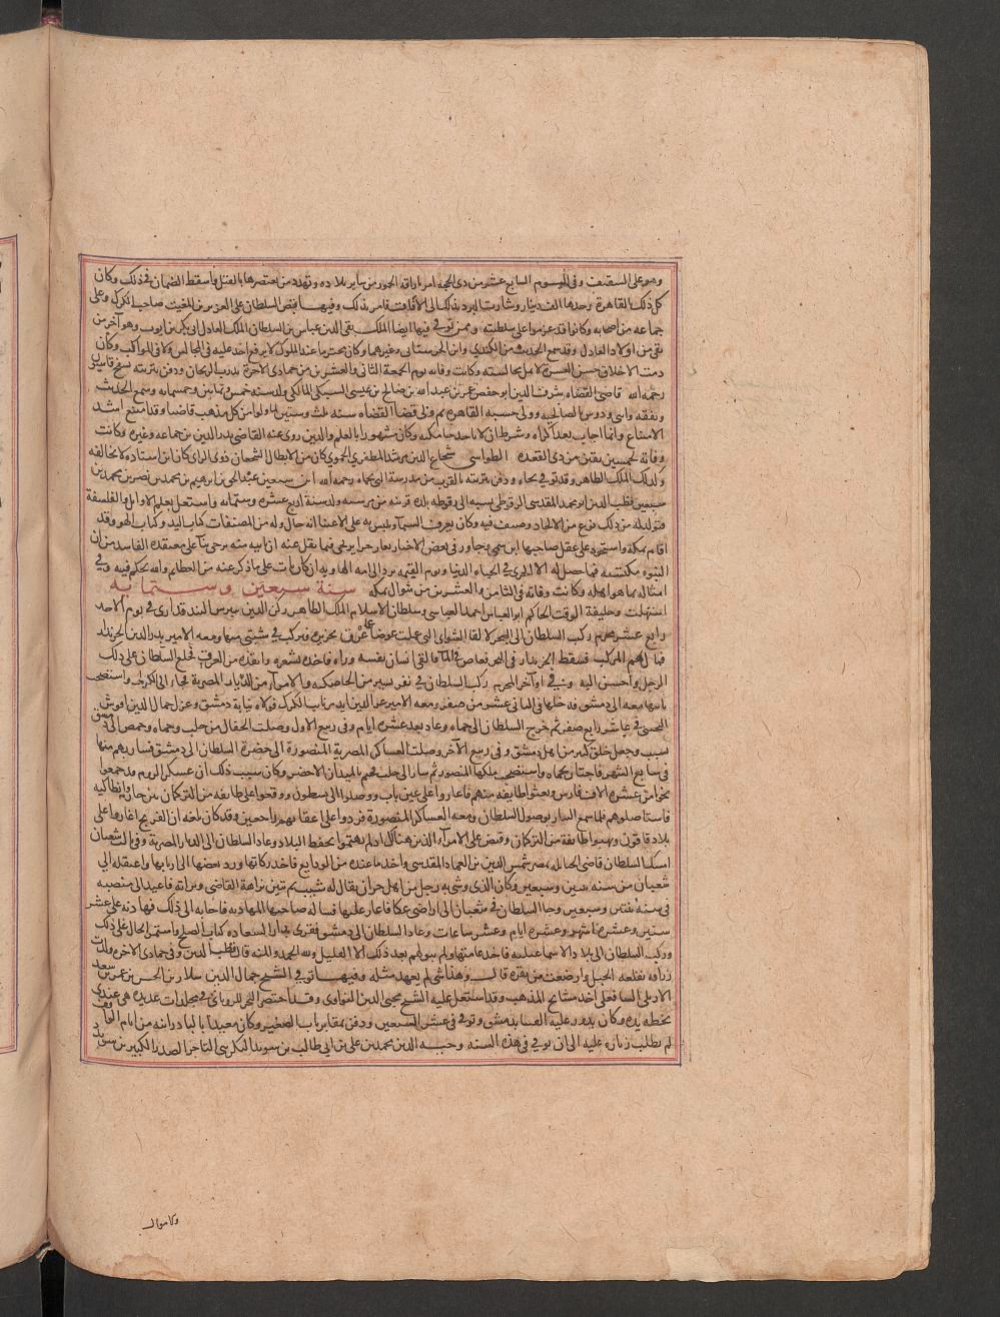 وهو على المستقنف وفى اليوم السابع عشر من ذى الحجه امر باراقه الخمور من ساير بلاده وتهدد من يعتصرها بالقتل واسقط الضمان فى ذلك وكان
كل ذلك بالقاهرة وحدها الف دينار وسارت البرد بذلك الى الآفاق فامر بذلك وفيها قبض السلطان على العزيز بن المغيث صاحب الكرك وعلى
جماعه من اصحابه وكانوا قد عزموا على سلطنته وممن توفى فيها ايضا الملك تقى الدين عباس بن السلطان الملك العادل ابى بكر بن ايوب وهو آخر من
بقى من اولاد العادل وقد سمع الحديث من الكندى وابن الحرستانى وغيرهما وكان محترما عند الملوك لا يرفع احد عليه فى المجالس ولا فى المواكب وكان
دمث الاخلاق حسن العشرة لا تمل مجالسته وكانت وفاته يوم الجمعة الثانى والعشرين من جمادى الآخرة بدرب الريحان ودفن بتربته بسفح قاسيون
رحمه الله قاضى القضاه شرف الدين ابو حفص عمر بن عبد الله بن صالح بن عيسى السبكى المالكى ولد سنة خمس وثمانين وخمسمايه وسمع الحديث
وتفقه وافتى ودرس بالصالحيه وولى حسبه القاهره ثم ولى قضا القضاه سنه ثلث وستين لما ولوا من كل مذهب قاضيا وقد امتنع اشد
الامتناع وانما اجاب بعد اكراه وشرط ان لا ياخذ جامكيه وكان مشهورا بالعلم والدين روى عنه القاضى بدر الدين بن جماعه وغيره وكانت
وفاته لخمس بقين من ذى القعده الطواشى شجاع الدين مرشد المظفرى الحموى كان من الابطال الشجعان ذوى الراى كان ابن استاده لا يخالفه
وكذلك الملك الظاهر وقد توفى بحماه ودفن بتربته بالقرب من مدرسة التى بحماه رحمه الله ابن سبعين عبد الحق بن ابرهيم بن محمد بن نصر بن محمد بن
سبعين قطب الدين ابو محمد المقدسى الرقوطى نسبه الى رقوطه بلده قريبه من مرسيه ولد سنة اربع عشره وستمايه واشتغل بعلم الاوايل والفلسفة
فتولد له من ذلك نوع من الالحاد وصنف فيه وكان يعرف السيميا ويلبس به على الاغبيا انه حال وله من المصنفات كتاب البد وكتاب الهو وقد
اقام بمكه واستحوذ على عقل صاحبها ابن سمى وجاور فى بعض الاخبار بغار حرا يرتجى فيما نقل عنه ان ياتيه منه وحى بنا على معتقده الفاسد من ان
النبوه مكتسبه فما حصل له الا الخزى فى الحياه الدنيا ويوم القيمه يرد الى امه الهاويه ان كان مات على ما ذكر عنه من العظايم والله يحكم فيه وفى
امثاله بما هو اهله وكانت وفاته فى الثامن والعشرين من شوال بمكه سنة سبعين وستمايه
استهلت وخليفة الوقت الحاكم ابو العباس احمد العباسى وسلطان الاسلام الملك الظاهر ركن الدين بيبرس البندقدارى فى يوم الاحد
رابع عشر محرم ركب السلطان الى البحر لالقا الشوانى التى عملت عوضا عما غرق بجزيره قبرس فركب فى شينى منها ومعه الامير بدر الدين الخزندار
فمال بهم المركب فسقط الخزندار فى البحر فغاص فى الما فالقى انسان نفسه وراه فاخذه بشعره وانقذه من الغرق فخلع السلطان على ذلك
الرجل واحسن اليه وفى اواخر المحرم ركب السلطان فى نفر يسير من الخاصكيه والامرآ من الديار المصرية فجاء الى الكرك واستصحب
نايبها معه الى دمشق فدخلها فى الثانى عشر من صفر ومعه الامير عز الدين ايدمر نايب الكرك فولاه نيابة دمشق وعزل جمال الدين اقوش
النجيبى فى عاشر رابع صفر ثم خرج السلطان الى حماه وعاد بعد عشره ايام وفى ربيع الاول وصلت الجفال من حلب وحماه وحمص الى دمشق
بسبب وجفل خلق كثير من اهل دمشق وفى ربيع الآخر وصلت العساكر المصرية المنصورة الى حضرة السلطان الى دمشق فسار بهم منها
فى سابع الشهر فاجتاز بحماه واستصحب ملكها المنصور ثم سار الى حلب فخيم بالميدان الاخضر وكان سبب ذلك ان عسكر الروم قد جمعوا
نحوا من عشره الاف فارس وبعثوا طايفه منهم فاغاروا على عين تاب ووصلوا الى نسطون ووقعوا على طايفه من التركمان بين حارم وانطاكيه
فاستاصلوهم فلما سمع التتار بوصول السلطان ومعه العساكر المنصورة فردوا على اعقابهم راجعين وقد كان بلغه ان الفرنج اغاروا على
بلاد قاقون ونهبوا طايفة من التركمان وقبض على الامرآء الذين هناك اذ لم يهتموا بحفظ البلاد وعاد السلطان الى الديار المصريه وفى ثالث شعبان
امسك السلطان قاضى الحنابله بمصر شمس الدين بن العماد المقدسى واخذ ما عنده من الودايع فاخذ زكاتها ورد بعضها الى اربابها واعتقله الى
شعبان من سنه ثنتين وسبعين وكان الذى وشى به رجل من اهل حران يقال له شبيب ثم تبين نزاهة القاضى وبراته فاعيد الى منصبه
فى سنه ثنتين وسبعين وجا السلطان فى شعبان الى اراضى عكا فاغار عليها فساله صاحبها المهادنه فاجابه الى ذلك فهادنه على عشر
سنين وعشرة اشهر وعشره ايام وعشر ساعات وعاد السلطان الى دمشق فقرى بدار السعاده كتاب الصلح واستمر الحال على ذلك
ورجع السلطان الى بلاد الاسماعيليه فاخذ عامتها ولم يبق لهم بعد ذلك الا القليل ولله الحمد والمنه قال قطب الدين وفى جمادى الآخره ولدت
زرافه بقلعه الجبل وارضعت من بقره قال وهذا شى لم يعهد مثله وفيها توفى الشيخ جمال الدين سلار بن الحسن بن عمر بن سعيد
الاربلى الشافعى احد مشايخ المذهب وقد اشتغل عليه الشيخ محيى الدين النواوى وقد اختصر البحر للرويانى فى مجلدات عديده هى عندى
بخطه يده وكان يدور عليه الفتيا بدمشق وتوفى فى عشر السبعين ودفن بمقابر باب الصغير وكان معيدا بالبادرائيه من ايام الواقف
لم يطلب زياده عليه الى ان توفى فى هذه السنه وجيه الدين محمد بن على بن ابى طالب بن سويد التكريتى التاجر الصدر الكبير بن سويد
وكا موال